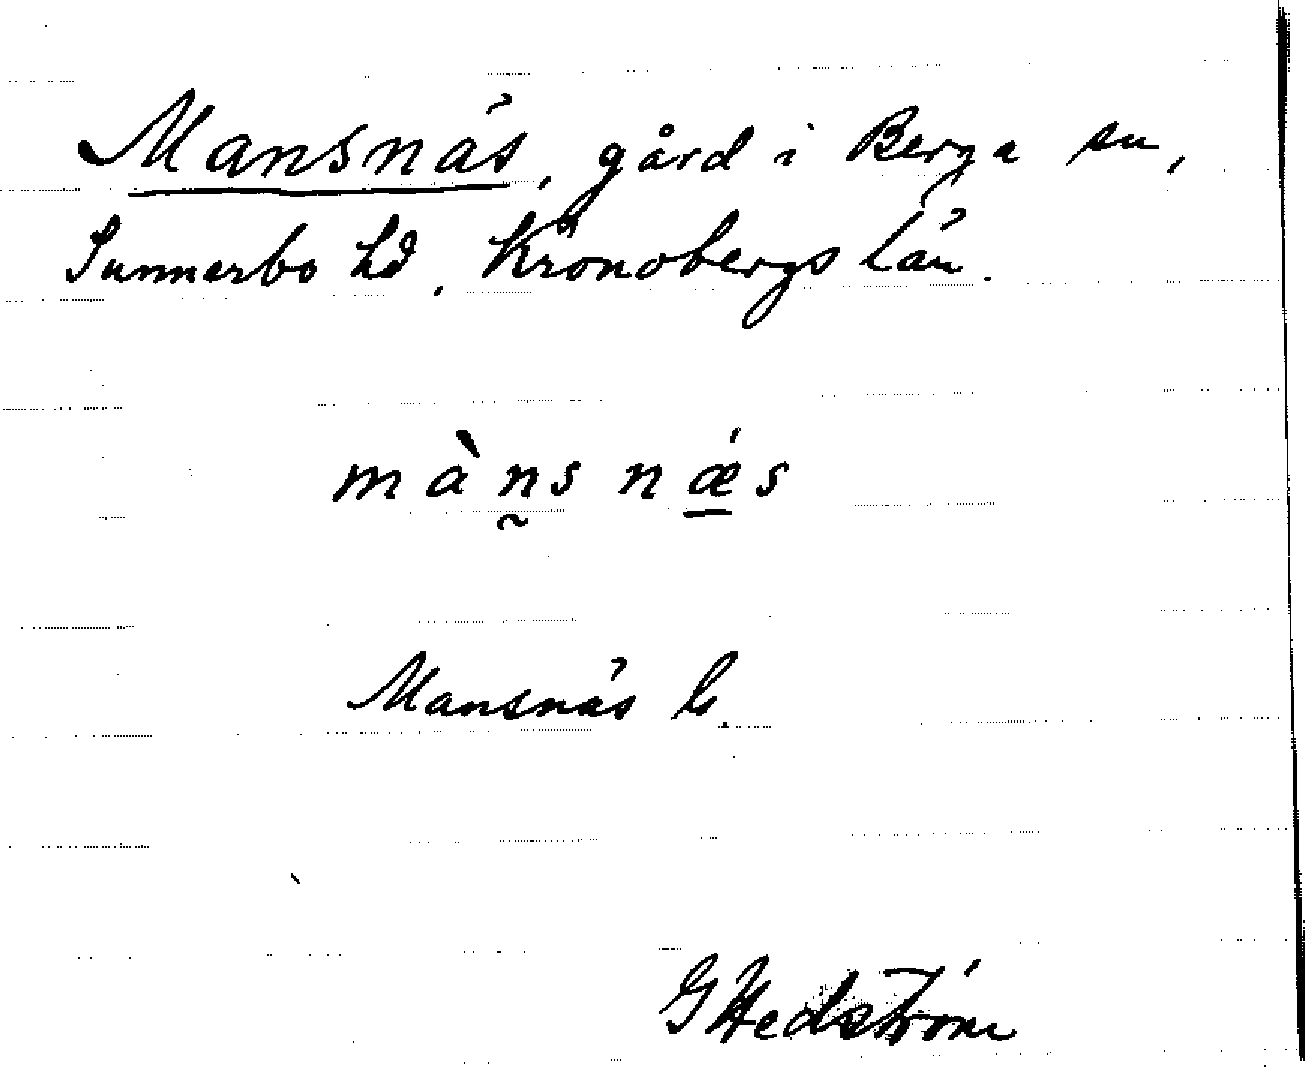 Mansnäs, gård i Berga sn,
Sunnerbo hd, Kronobergs län.
màn̰s nǽ̲s
Mansnäs
GHedström